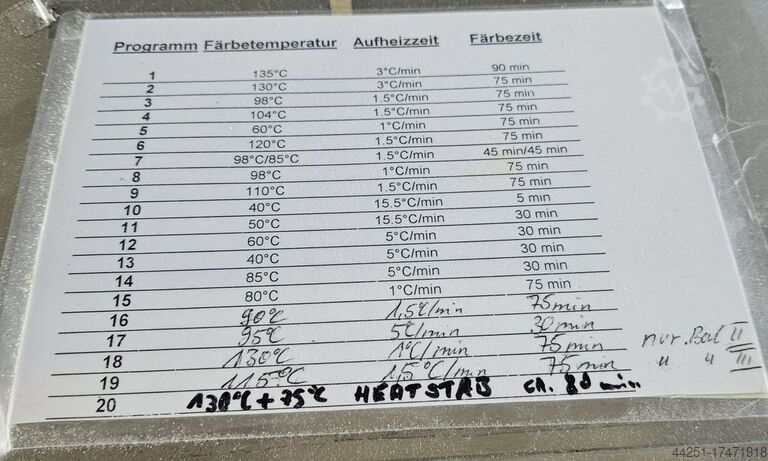 Programm Färbetemperatur Aufheizzeit Färbezeit
1 135°C 3°C/min 90 min
2 130°C 3°C/min 75 min
3 98°C 1.5°C/min 75 min
4 104°C 1.5°C/min 75 min
5 60°C 1°C/min 75 min
6 120°C 1.5°C/min 75 min
7 98°C/85°C 1.5°C/min 45 min/45 min
8 98°C 1°C/min 75 min
9 110°C 1.5°C/min 75 min
10 40°C 15.5°C/min 5 min
11 50°C 15.5°C/min 30 min
12 60°C 5°C/min 30 min
13 40°C 5°C/min 30 min
14 85°C 5°C/min 30 min
15 80°C 1°C/min 75 min
16 90°C 1,5°C/min 75min
17 95°C 5°C/min 30min
18 130°C 1°C/min 75min nur Bad II
19 115°C 1,5°C/min 75min " " III
20 130°C + 75°C HEATSTAB CA. 80 min
44251-17471918